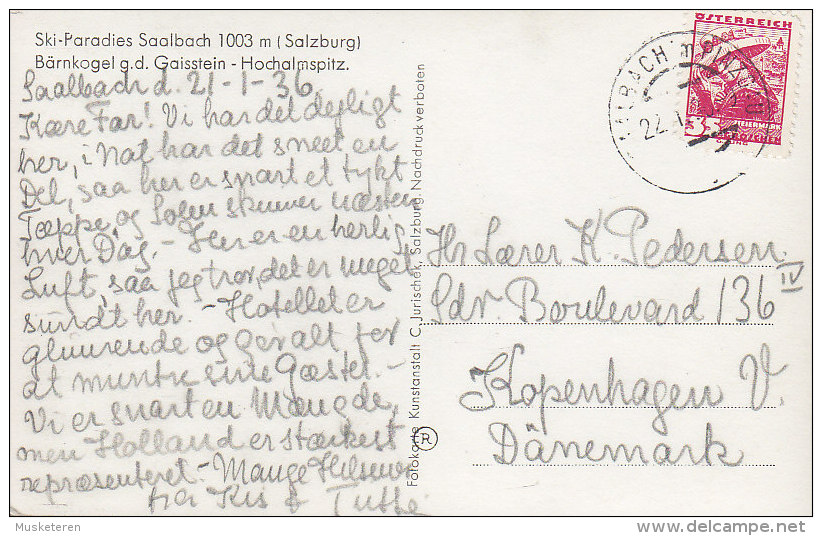 Ski-Paradies Saalbach 1003 m (Salzburg)
Bärnkogel g.d. Gaisstein - Hochalmspitz.
Saalbach d. 21-1-36.
Kære Far! Vi har det dejligt
her, i Nat har det sneet en
Del, saa her er snart et tykt
Tæppe, og Solen skinner næsten
hver Dag. - Her er en herlig
Luft, saa jeg tror, det er meget
sundt her. - Hotellet er
glimrende og gør alt for
at muntre sine Gæster. -
Vi er snart en Mængde,
men Holland er stærkest
repræsenteret. - Mange Hilsener
fra Kis & Tutte
Fotokarte Kunstanstalt C. Jurischek, Salzburg. Nachdruck verboten
R
ÖSTERREICH
STEIERMARK
35
GROSCHEN
SAALBACH
22.
Hr. Lærer K. Pedersen
Sdr. Boulevard 136 IV
Kopenhagen V.
Dänemark
Musketeren
delcampe.net